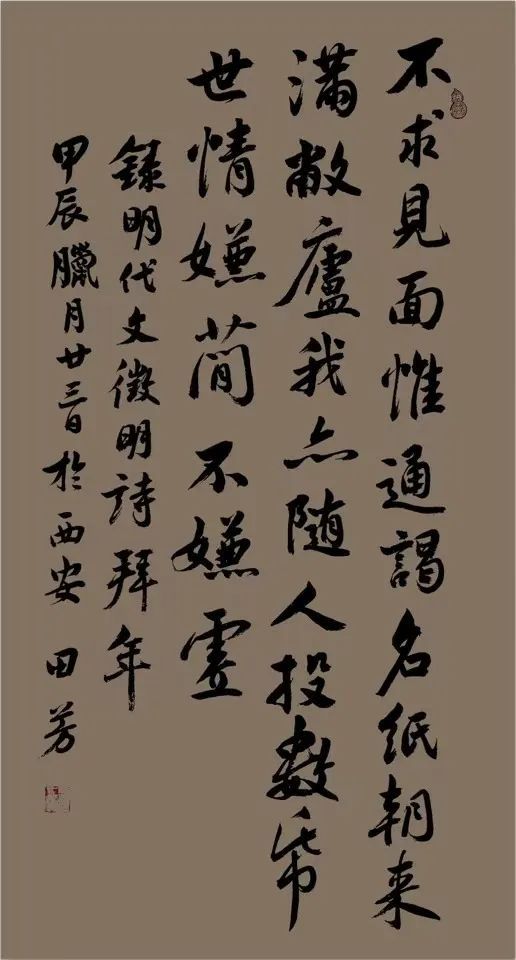 不求見面惟通謁名紙朝来
滿敝廬我亦随人投數帋
世情嫌簡不嫌虛
録明代文徵明詩拜年
甲辰臘月廿三日於西安 田芳